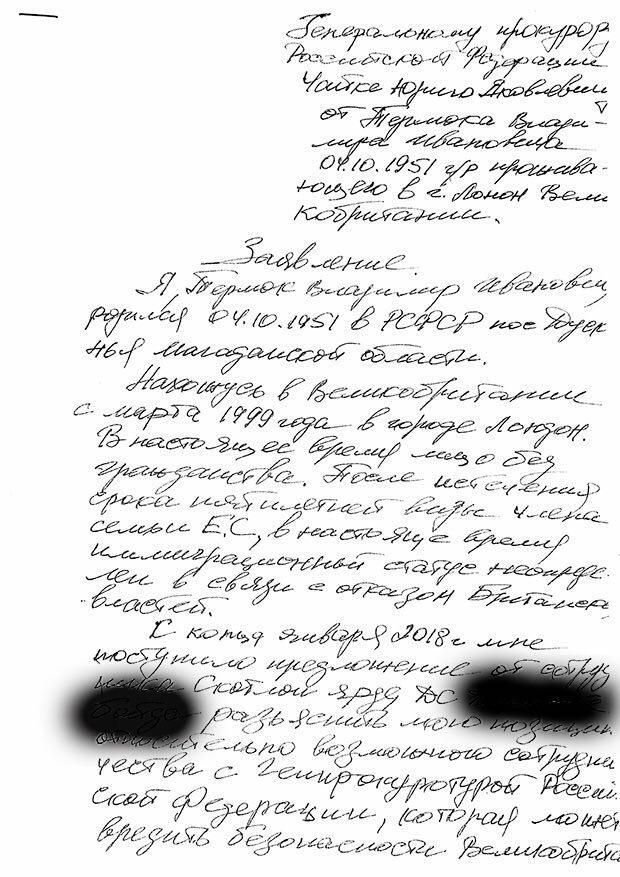 Генеральному прокурору
Российской Федерации
Чайке Юрию Яковлевичу
от Термока Влади-
мира Ивановича
04.10.1951 г/р прожива-
ющего в г. Лонон Вели
кобритании.
Заявление.
Я Термок Владимир Иванович,
родился 04.10.1951 в РСФСР пос
нья Магаданской области.
Нахожусь в Великобритании
с марта 1999 года в городе Лондон.
В настоящее время лицо без
гражданства. После истечения
срока пятилетней визы члена
семьи Е.С, в настояще время
иммиграционный статус неопреде-
лен в связи с отказом Британск
властей.
С конца января 2018 г мне
поступило предложение от сотруд
ника Скотлон ярда ДС
разъяснить мою позицию
относительно возможного сотрудни
чества с Генпрокуратурой Россий
ской Федерации, которая может
вредить безопасности Великобрита